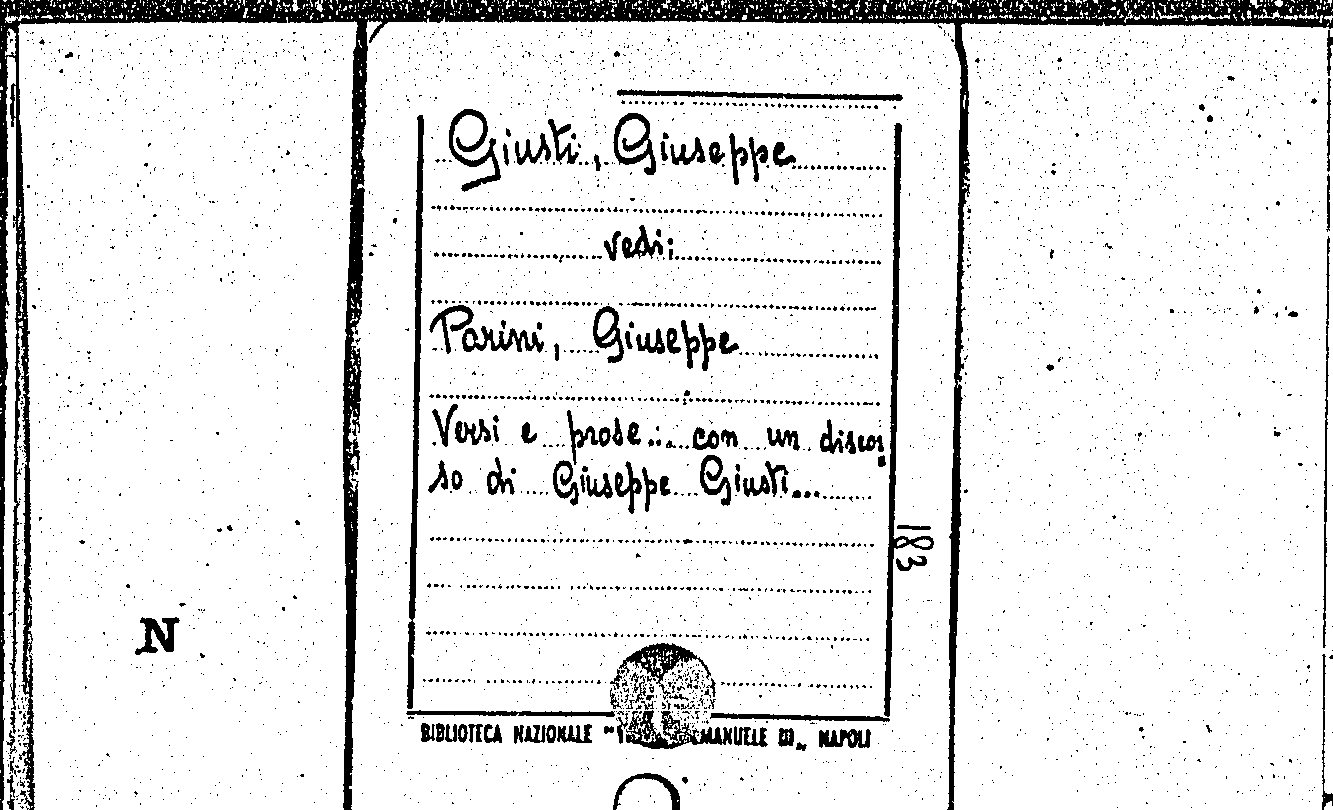 Giusti, Giuseppe
vedi:
Parini, Giuseppe
Versi e prose... con un discor
so di Giuseppe Giusti...
183
N
BIBLIOTECA NAZIONALE " EMANUELE III„ NAPOLI